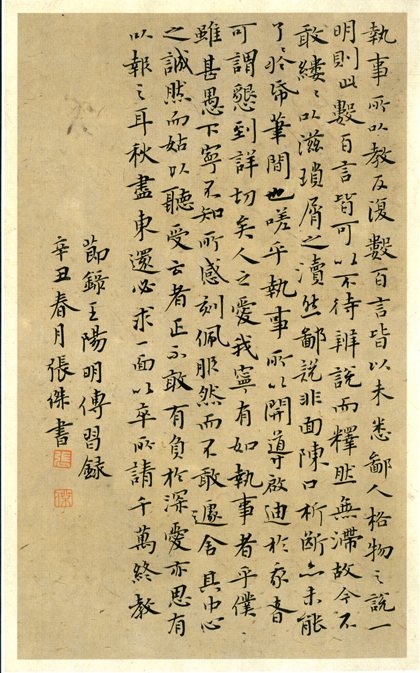 執事所以教反復數百言皆以未悉鄙人格物之說一
明則此數百言皆可以不待辨說而釋然無滯故今不
敢縷〻以滋瑣屑之瀆然鄙說非面陳口析斷亦未能
了於帋筆間也嗟乎執事所以開導啟迪於我者
可謂懇到詳切矣人之愛我寧有如執事者乎僕
雖甚愚下寧不知所感刻佩服然而不敢遽舍其中心
之誠然而姑以聽受云者正不敢有負於深愛亦思有
以報之耳秋盡東還必求一面以卒所請千萬終教
節錄王陽明傳習錄
辛丑春月張傑書
張
傑